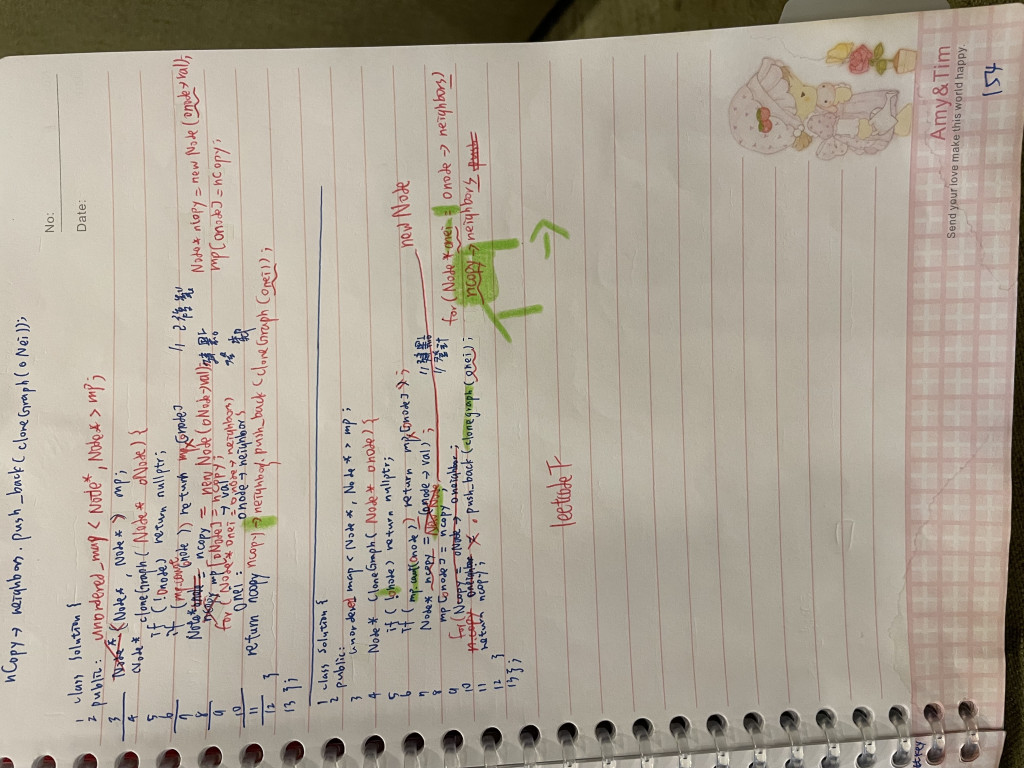 nCopy → neighbors. push_back( cloneGraph( oNei));
No:
Date:
1 class Solution {
2 public: unordered_map < Node*, Node* > mp;
3 Node* < Node*, Node* > mp;
4 Node* cloneGraph( Node* oNode) {
5 if ( !Onode) return nullptr;
6 if (mp.count(Onode)) return mp[Onode]
7 = new Node(oNode→val);
Node* ncopy = new Node (onode→val);
8 ncopy mp[oNode] = ncopy;
mp[onode] = nCopy;
9 for ( Node* onei = onode→neighbors)
10 onei : onode→neighbors
11 return ncopy ncopy → neighbor. push_back ( cloneGraph (onei));
12 }
13 };
1 class Solution {
2 public:
3 unordered map < Node*, Node* > mp;
4 Node* cloneGraph( Node* onode) {
5 if ( !onode) return nullptr;
6 if ( mp.count(onode)) return mp[onode];
7 Node* ncopy = (onode→val);
new Node
8 mp[onode] = ncopy
9 for(Ncopy = oNode → oneighbor;
for (Node* onei : onode → neighbors)
10 ncopy . push_back (clonegraph (onei);
ncopy → neighbors
11 return ncopy;
12 }
13 };
leetcode下
Amy&Tim
Send your love make this world happy.
154